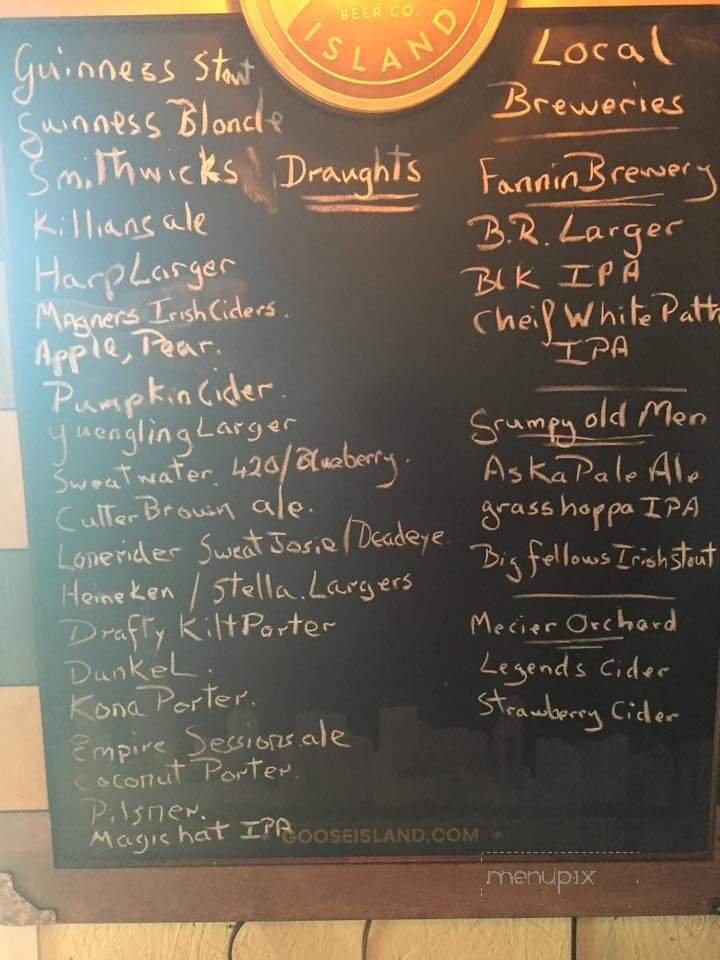 BEER CO.
ISLAND
Guinness Stout
Guinness Blonde
Smithwicks
Killians ale
Harp Larger
Magners Irish Ciders.
Apple, Pear.
Pumpkin Cider.
Yuengling Larger
Sweatwater. 420/Blueberry.
Cutter Brown ale.
Lonerider Sweat Josie/Deadeye
Heineken / Stella. Largers
Drafty Kilt Porter
Dunkel.
Kona Porter.
Empire Sessions ale
Coconut Porter.
Pilsner.
Magichat IPA
Draughts
Local
Breweries
Fannin Brewery
B.R. Larger
Blk IPA
Cheif White Path
IPA
Grumpy old Men
Aska Pale Ale
grasshoppa IPA
Big fellows Irish stout
Mecier Orchard
Legends Cider
Strawberry Cider
GOOSEISLAND.COM
menupix